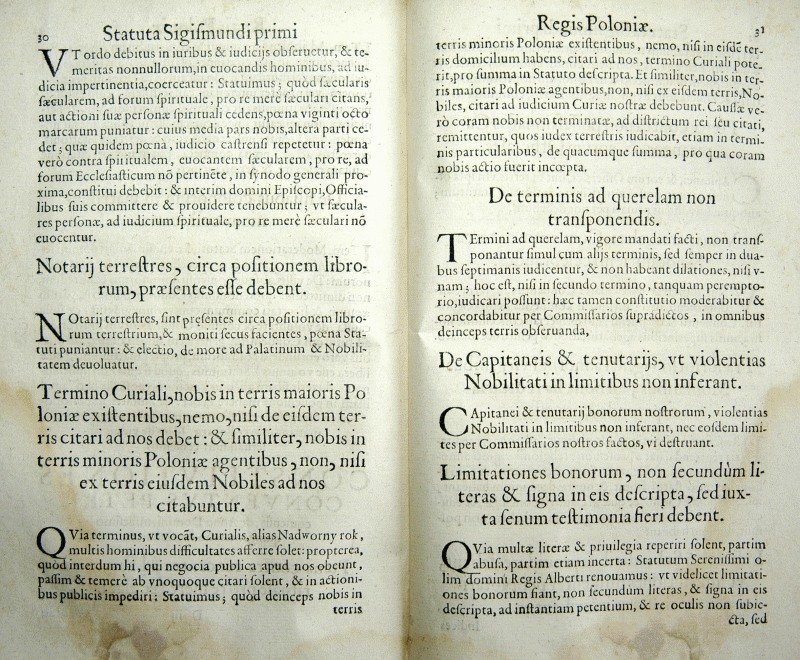 30
Statuta Sigiſmundi primi
VT ordo debitus in iuribus & iudicijs obſeruetur, & te-
meritas nonnullorum, in euocandis hominibus, ad iu-
dicia impertinentia, coerceatur: Statuimus; quòd ſæcularis
ſæcularem, ad forum ſpirituale, pro re mere ſæculari citans,
aut actioni ſuæ perſonæ ſpirituali cedens, pœna viginti octo
marcarum puniatur: cuius media pars nobis, altera parti ce-
det; quæ quidem pœna, iudicio caſtrenſi repetetur: pœna
verò contra ſpiritualem, euocantem ſæcularem, pro re, ad
forum Eccleſiaſticum nō pertinēte, in ſynodo generali pro-
xima, conſtitui debebit: & interim domini Epiſcopi, Officia-
libus ſuis committere & prouidere tenebuntur; vt ſæcula-
res perſonæ, ad iudicium ſpirituale, pro re merè ſæculari nō
euocentur.
Notarij terreſtres, circa poſitionem libro-
rum, præſentes eſſe debent.
NOtarij terreſtres, ſint preſentes circa poſitionem libro-
rum terreſtrium, & moniti ſecus facientes, pœna Sta-
tuti puniantur: & electio, de more ad Palatinum & Nobili-
tatem deuoluatur.
Termino Curiali, nobis in terris maioris Po
loniæ exiſtentibus, nemo, niſi de eiſdem ter-
ris citari ad nos debet: & ſimiliter, nobis in
terris minoris Poloniæ agentibus, non, niſi
ex terris eiuſdem Nobiles ad nos
citabuntur.
QVia terminus, vt vocāt, Curialis, alias Nadworny rok,
multis hominibus difficultates afferre ſolet: propterea,
quòd interdum hi, qui negocia publica apud nos obeunt,
paſſim & temerè ab vnoquoque citari ſolent, & in actioni-
bus publicis impediri: Statuimus; quòd deinceps nobis in
terris
Regis Poloniæ.
31
terris minoris Poloniæ exiſtentibus, nemo, niſi in eiſdē ter-
ris domicilium habens, citari ad nos, termino Curiali pote-
rit, pro ſumma in Statuto deſcripta. Et ſimiliter, nobis in ter-
ris maioris Poloniæ agentibus, non, niſi ex eiſdem terris, No-
biles, citari ad iudicium Curiæ noſtræ debebunt. Cauſſæ ve-
rò coram nobis non terminatæ, ad diſtrictum rei ſeu citati,
remittentur, quos iudex terreſtris iudicabit, etiam in termi-
nis particularibus, de quacumque ſumma, pro qua coram
nobis actio fuerit incœpta.
De terminis ad querelam non
tranſponendis.
TErmini ad querelam, vigore mandati facti, non tranſ-
ponantur ſimul cum alijs terminis, ſed ſemper in dua-
bus ſeptimanis iudicentur, & non habeant dilationes, niſi v-
nam; hoc eſt, niſi in ſecundo termino, tanquam peremp to-
rio, iudicari poſſunt: hæc tamen conſtitutio moderabitur &
concordabitur per Commiſſarios ſupradictos, in omnibus
deinceps terris obſeruanda,
De Capitaneis & tenutarijs, vt violentias
Nobilitati in limitibus non inferant.
CApitanei & tenutarij bonorum noſtrorum, violentias
Nobilitati in limitibus non inferant, nec eoſdem limi-
tes per Commiſſarios noſtros factos, vi deſtruant.
Limitationes bonorum, non ſecundùm li-
teras & ſigna in eis deſcripta, ſed iux-
ta ſenum teſtimonia fieri debent.
QVia multæ literæ & priuilegia reperiri ſolent, partim
abuſa, partim etiam incerta: Statutum Sereniſſimi o-
lim domini Regis Alberti renouamus: vt videlicet limitati-
ones bonorum fiant, non ſecundum literas, & ſigna in eis
deſcripta, ad inſtantiam petentium, & re oculis non ſubie-
cta, ſed